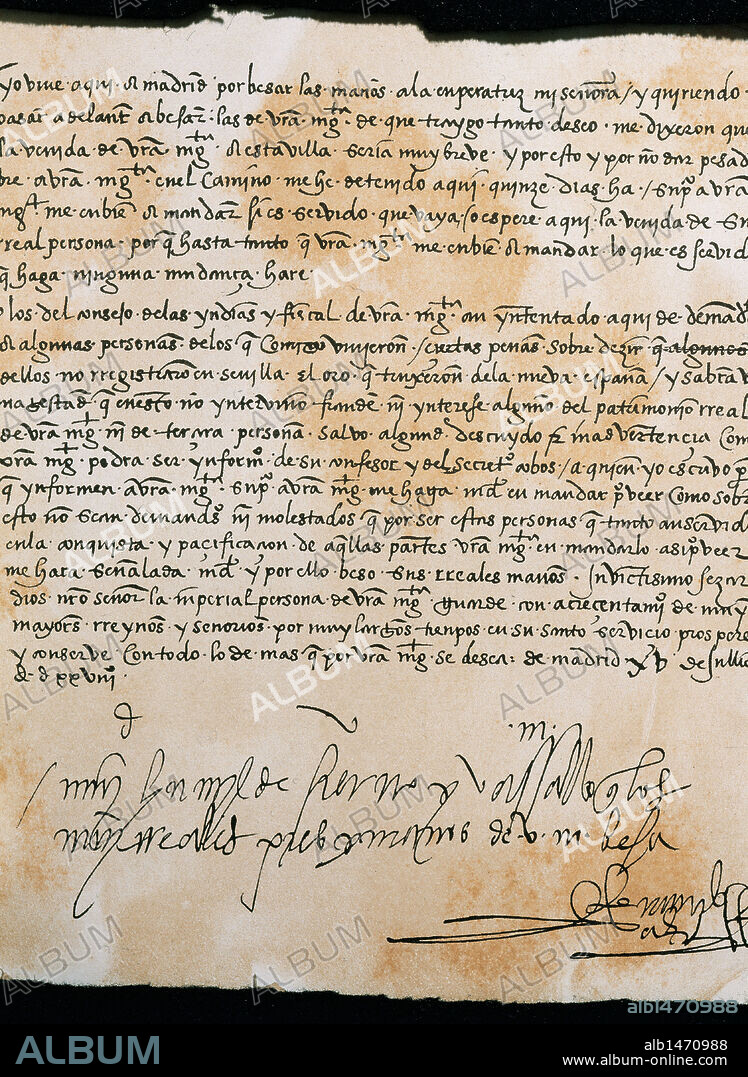 Yo vine aqui a madrid por besar las manos a la enperatriz mi señora / y quiriendo
pasar adelante a besar las de vra mgt de que traygo tanto deseo me dixeron que
la venida de vra mgt a esta villa seria muy breve y por esto y por no dar pesad
bre a vra mgt en el camino me he detenido aqui quinze dias ha / supco a vra
mgt me enbie a mandar si es servido que vaya / o espere aqui la venida de su
rreal persona porq hasta tanto q vra mgt me enbie a mandar lo que es servid
q haga ninguna mudança hare
los del consejo de las yndias y fiscal de vra mgt an yntentado aqui de demādar
a algunas personas de los q comigo vinieron / ciertas penas sobre dezir q algunos
dellos no rregistraron en sevilla el oro q truxeron de la nueva españa / y sabra v
magestad q en esto no yntervino fraude ni ynterese alguno del patrimonio rreal
de vra mgt ni de tercera persona salvo algund descuydo o inadvertencia com
vra mgt podra ser ynformdo de su confesor y del secreto cobos / a quien yo escrivo pa
q ynformen a vra mgt supco a vra mgt me haga md en mandar pveer como sobr
esto no sean demandados ni molestados q por ser estas personas q tanto an servid
en la conquista y pacificacion de aqllas partes vra mgt en mandarlo asi pveer
me hara señalada md y por ello beso sus rreales manos Invictisimo sezar
dios nro señor la inperial persona de vra mgt guarde con acrecentamio de muy
mayores rreynos y señorios por muy largos tienpos en su santo servicio prospere
y conserve con todo lo demas q por vra mgt se desea: de madrid xv de Jullio
de dxxviii
.m.
muy humylde syervo y vasallo q los
muy rreales pies y manos de v. m. besa
Hernando
Cortes
ALBUM
alb1470988
alb1470988
www.album-online.com